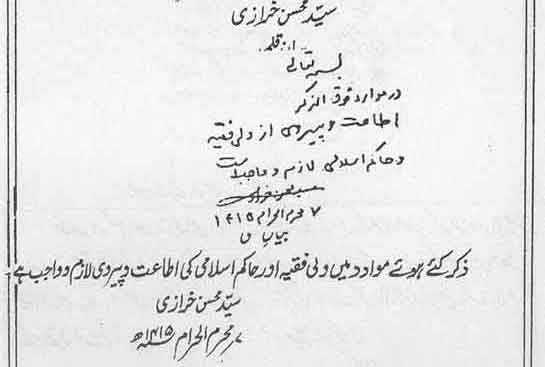 سیّد محسن خرازی
از: قلمہ
بسمہ تعالی
در موارد فوق الذکر
اطاعت و پیروی از ولی فقیہ
و حاکم اسلامی لازم و واجب است
سید محسن خرازی
۷ محرم الحرام ۱۴۱۵
ذکر کئے ہوئے موارد میں ولی فقیہ اور حاکم اسلامی کی اطاعت و پیروی لازم و واجب ہے۔
سیّد محسن خرازی
۷ محرم الحرام ۱۴۱۵ھ